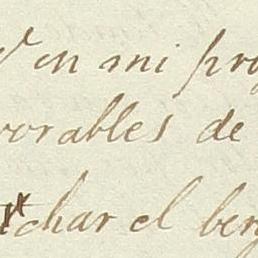 en mi pro
orables de
char el ber